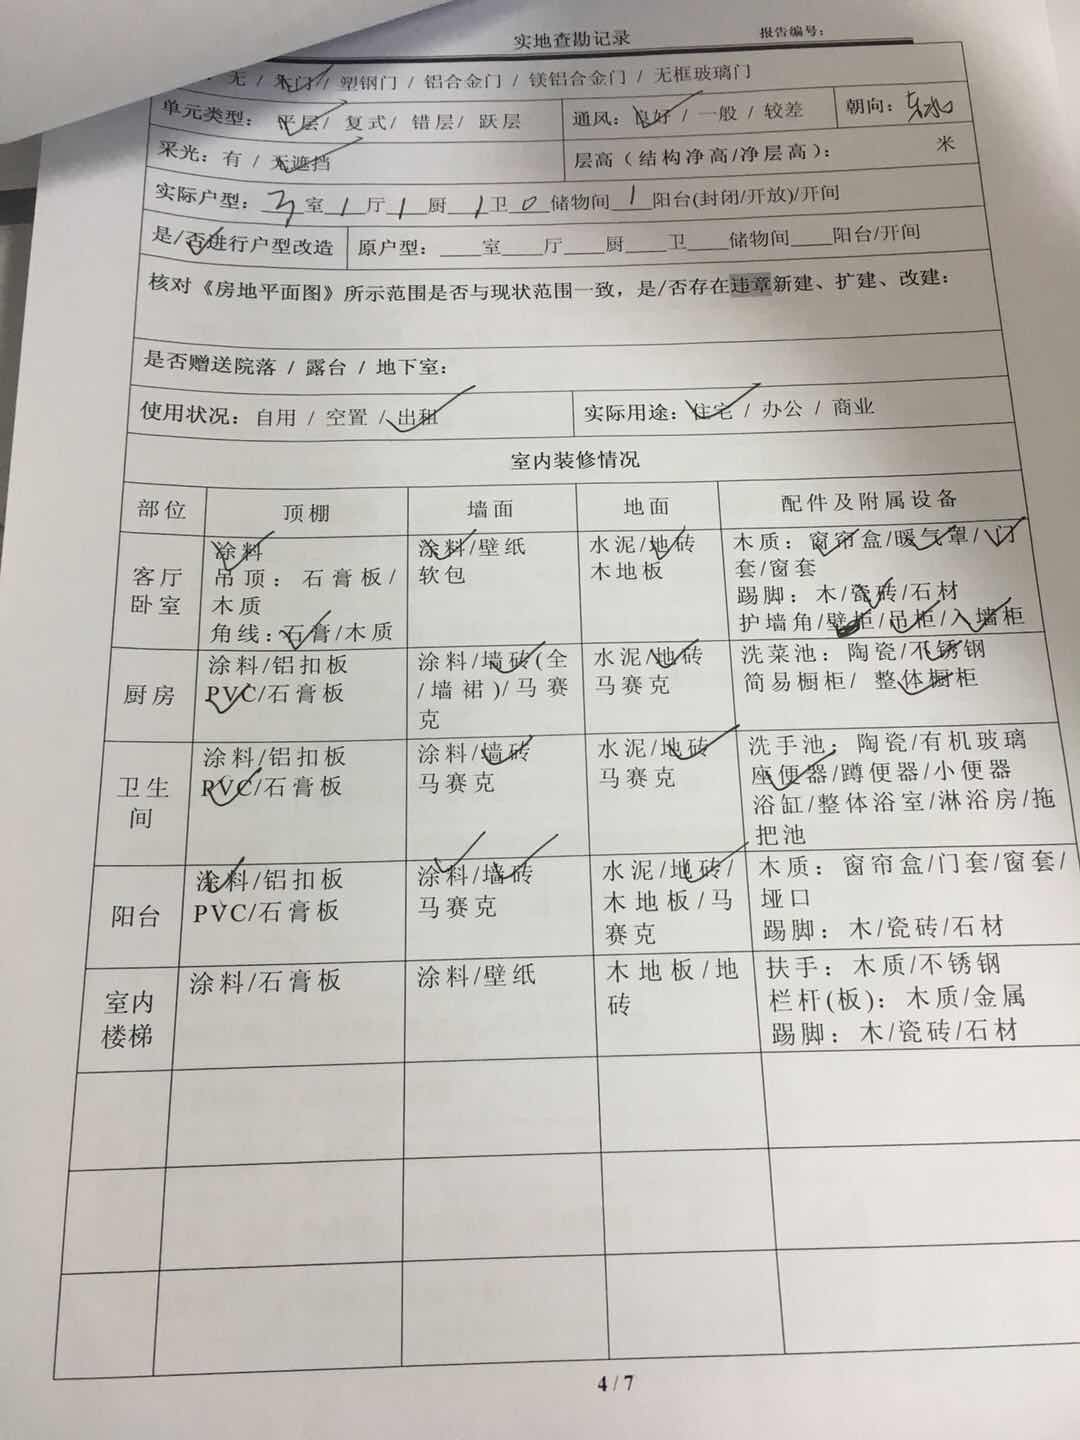 实地查勘记录 报告编号:
无 / 木门 / 塑钢门 / 铝合金门 / 镁铝合金门 / 无框玻璃门
单元类型: 平层/ 复式/ 错层/ 跃层 通风: 良好 / 一般 / 较差 朝向: 东北
采光: 有 / 无遮挡 层高 (结构净高/净层高): 米
实际户型: 3 室 1 厅 1 厨 1 卫 0 储物间 1 阳台(封闭/开放)/开间
是/否进行户型改造 原户型: ____室____厅____厨____卫____储物间____阳台/开间
核对《房地平面图》所示范围是否与现状范围一致，是/否存在违章新建、扩建、改建:
是否赠送院落 / 露台 / 地下室:
使用状况: 自用 / 空置 / 出租 实际用途: 住宅 / 办公 / 商业
室内装修情况
部位 顶棚 墙面 地面 配件及附属设备
客厅
卧室
涂料
吊顶: 石膏板/
木质
角线: 石膏/木质
涂料/壁纸
软包
水泥/地砖
木地板
木质: 窗帘盒/暖气罩/门
套/窗套
踢脚: 木/瓷砖/石材
护墙角/壁柜/吊柜/入墙柜
厨房
涂料/铝扣板
PVC/石膏板
涂料/墙砖(全
/墙裙)/马赛
克
水泥/地砖
马赛克
洗菜池: 陶瓷/不锈钢
简易橱柜/ 整体橱柜
卫生
间
涂料/铝扣板
PVC/石膏板
涂料/墙砖
马赛克
水泥/地砖
马赛克
洗手池: 陶瓷/有机玻璃
座便器/蹲便器/小便器
浴缸/整体浴室/淋浴房/拖
把池
阳台
涂料/铝扣板
PVC/石膏板
涂料/墙砖
马赛克
水泥/地砖/
木地板/马
赛克
木质: 窗帘盒/门套/窗套/
垭口
踢脚: 木/瓷砖/石材
室内
楼梯
涂料/石膏板
涂料/壁纸
木地板/地
砖
扶手: 木质/不锈钢
栏杆(板): 木质/金属
踢脚: 木/瓷砖/石材
4 / 7